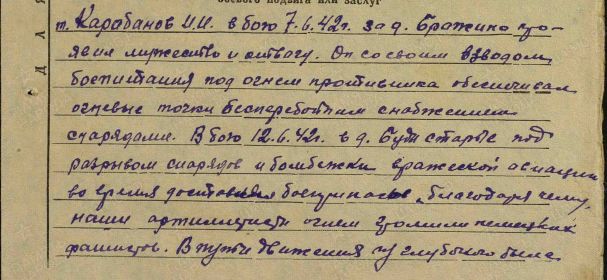 боевого подвига или заслуг
Д Л Я
т. Карабанов И.И. в бою 7.6.42г. за д. Бражино про-
явил мужество и отвагу. Он со своим взводом
боепитания под огнем противника обеспечивал
огневые точки бесперебойным снабжением
снарядами. В бою 12.6.42г. в д. Буды старые под
разрывом снарядов и бомбежки вражеской авиации
во время боеприпасов, благодаря чему,
наши артиллеристы огнем громили немецких
фашистов. В пути движения из глубокого